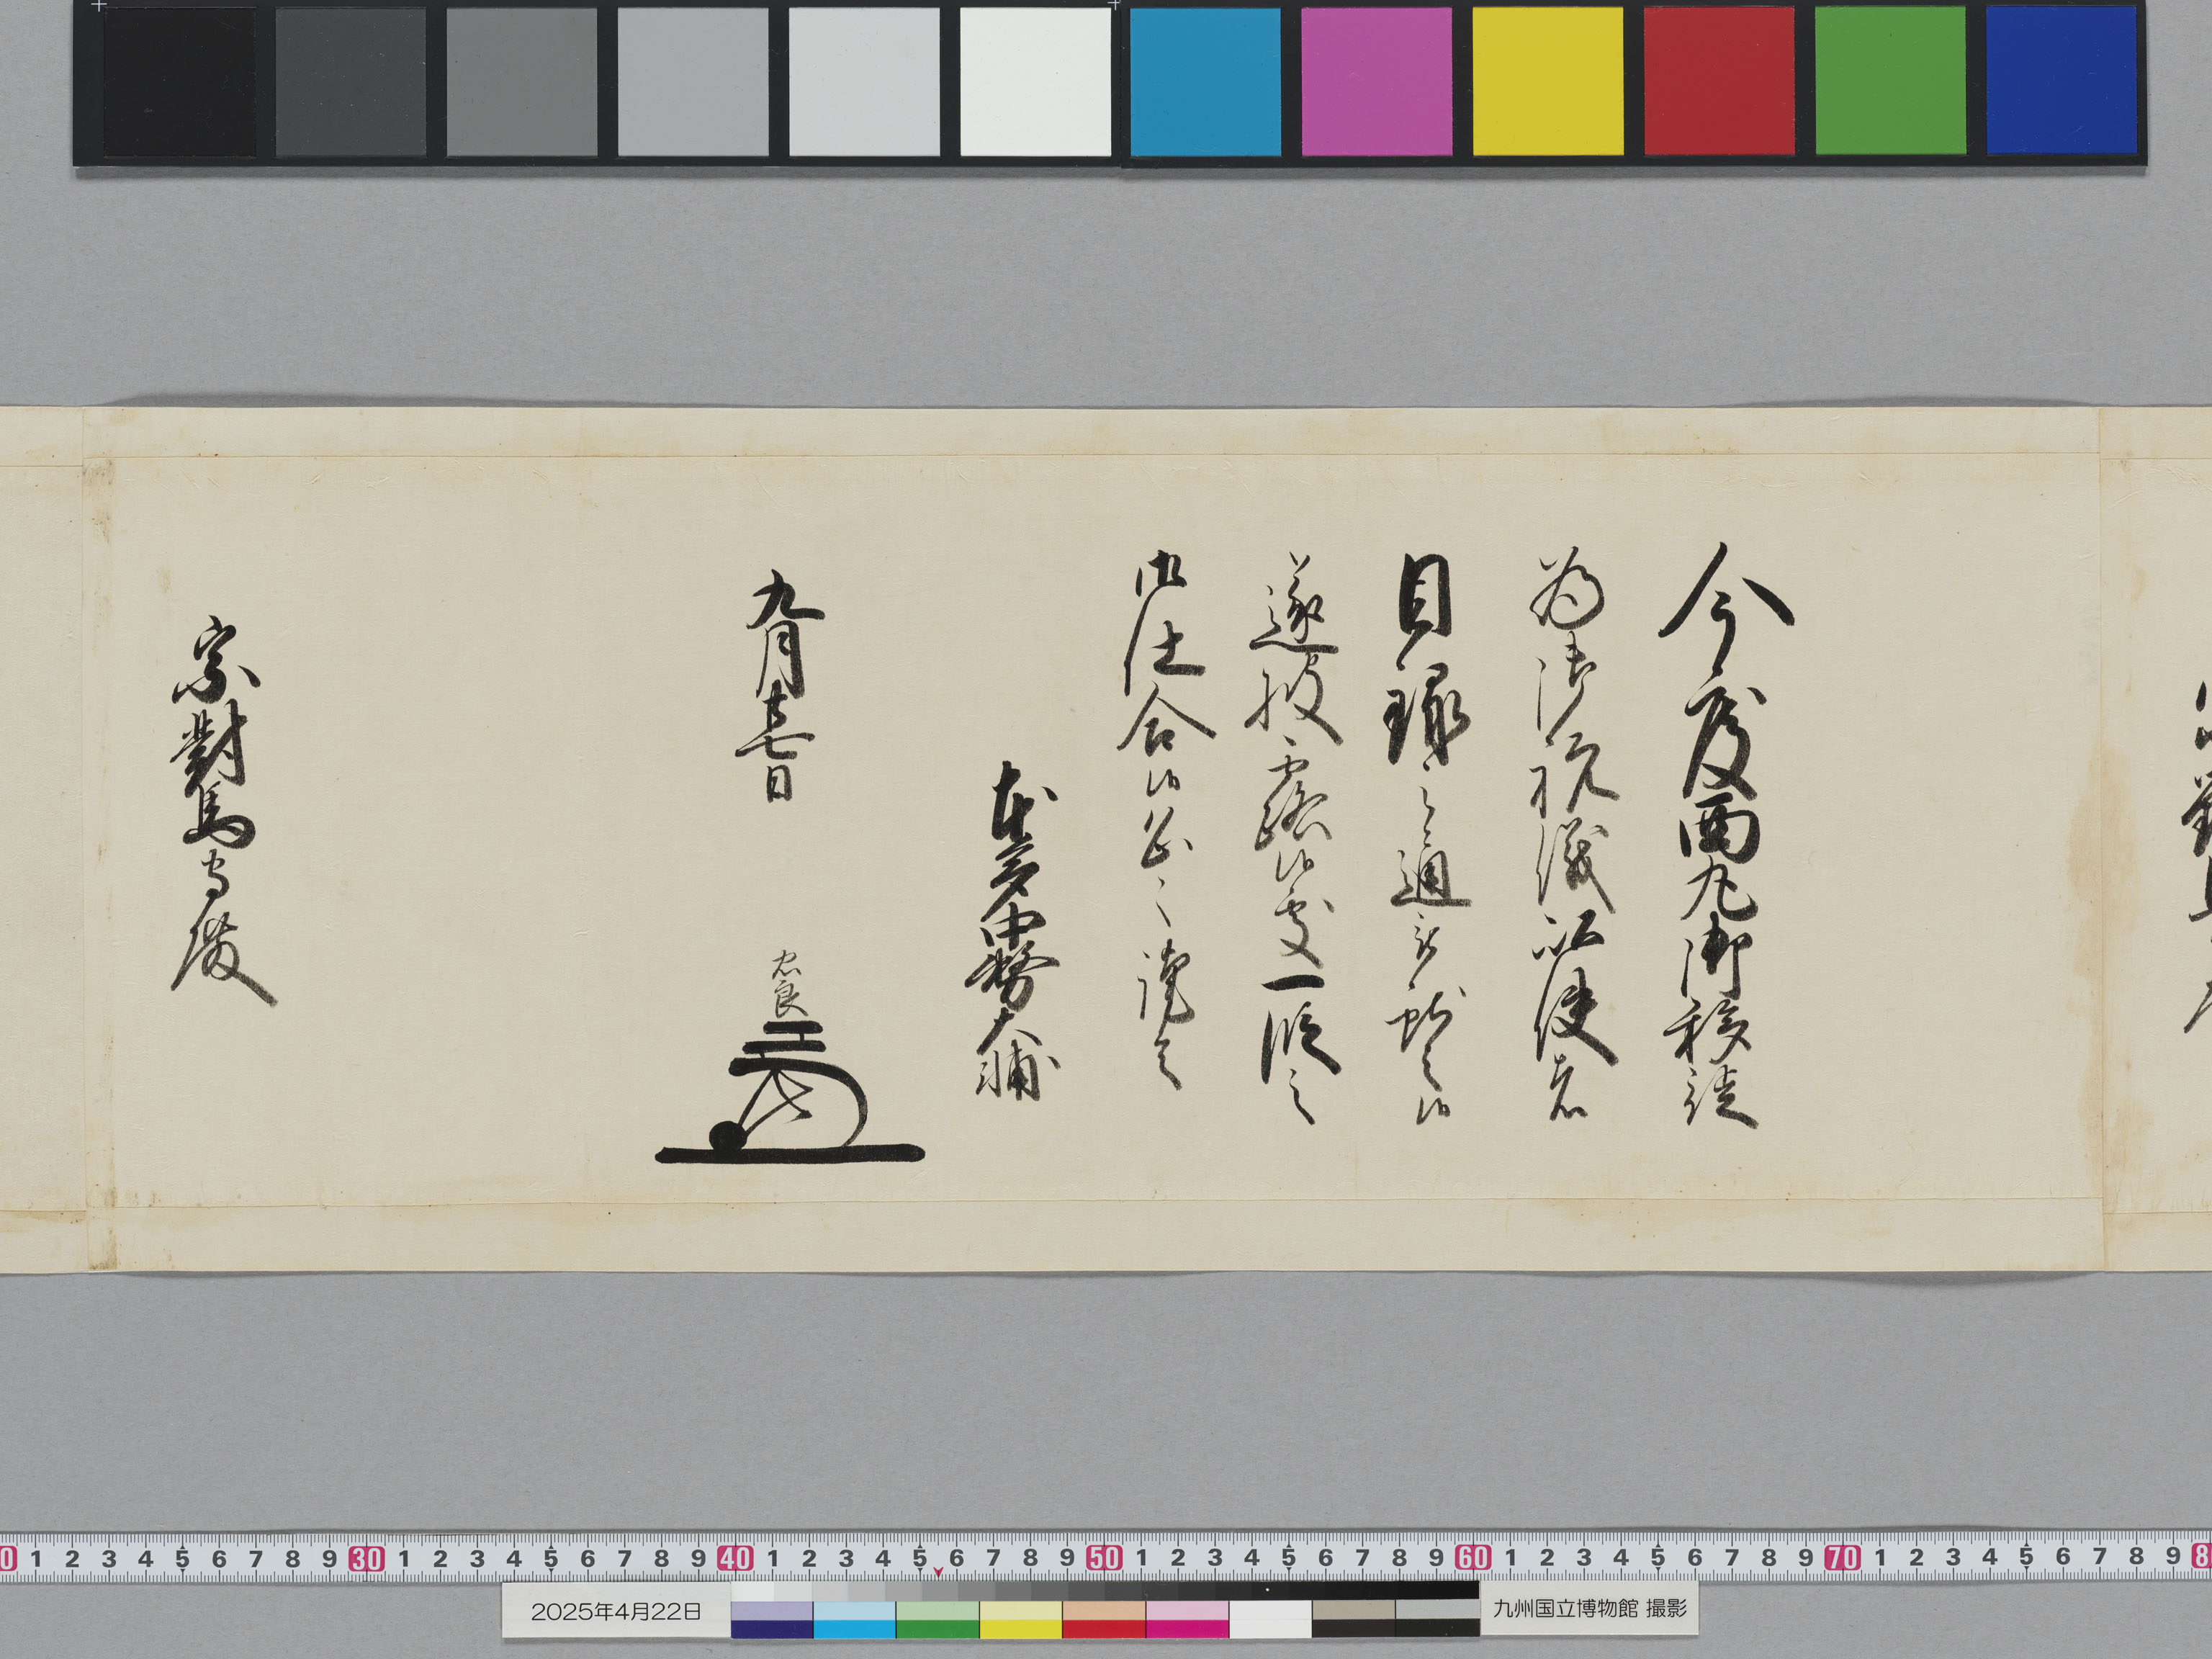 今度西丸御移徙
為御祝儀以使者
目録之通被献之候
遂披露候處一段之
御仕合候恐々謹言
本多中務大輔
九月廿七日
忠良
宗對馬守殿
0 1 2 3 4 5 6 7 8 9 30 1 2 3 4 5 6 7 8 9 40 1 2 3 4 5 6 7 8 9 50 1 2 3 4 5 6 7 8 9 60 1 2 3 4 5 6 7 8 9 70 1 2 3 4 5 6 7 8 9 8
2025年4月22日
九州国立博物館 撮影